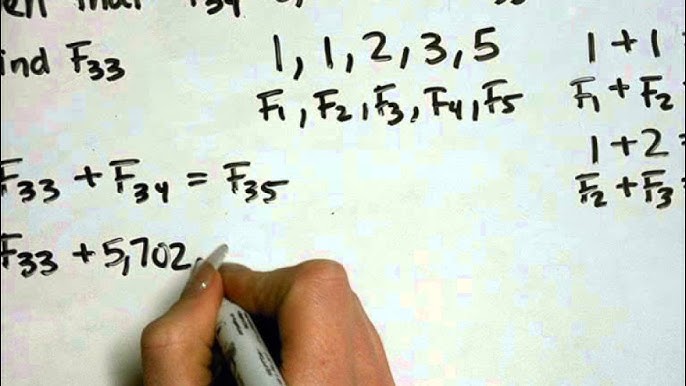 F34
ind F33
1, 1, 2, 3, 5
F1, F2, F3, F4, F5
1 + 1
F1 + F2
1 + 2 =
F2 + F3 =
F33 + F34 = F35
F33 + 5,702